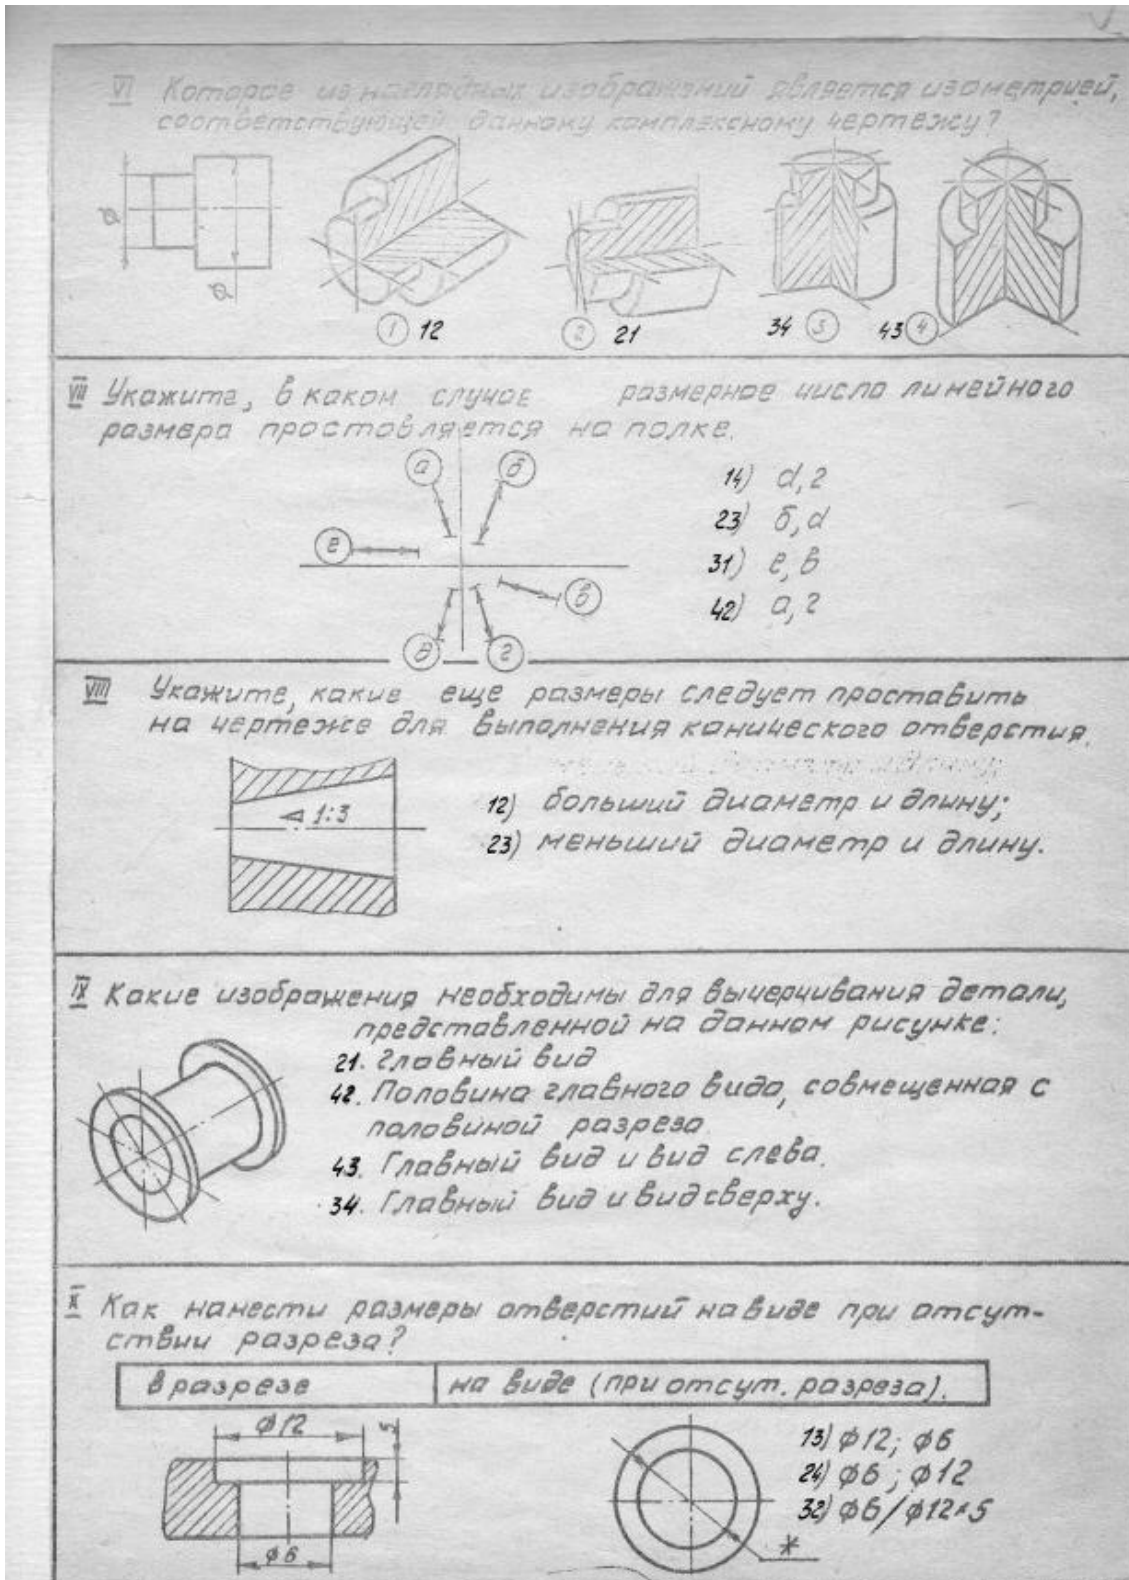 VI Которое из наглядных изображений является изометрией,
соответствующей данному комплексному чертежу?
ϕ
ϕ
1 12
2 21
34 3
43 4
VII Укажите, в каком случае размерное число линейного
размера проставляется на полке.
а
б
е
в
д
г
14) d, г
23) б, d
31) е, в
42) а, г
VIII Укажите, какие еще размеры следует проставить
на чертеже для выполнения канического отверстия.
1:3
12) больший диаметр и длину;
23) меньший диаметр и длину.
IX Какие изображения необходимы для вычерчивания детали,
представленной на данном рисунке:
21. Главный вид
42. Половина главного вида, совмещенная с
половиной разреза.
43. Главный вид и вид слева.
34. Главный вид и вид сверху.
X Как нанести размеры отверстий на виде при отсут-
ствии разреза?
в разрезе
на виде (при отсут. разреза).
ϕ12
5
ϕ6
*
13) ϕ12; ϕ6
24) ϕ6; ϕ12
32) ϕ6/ϕ12×5